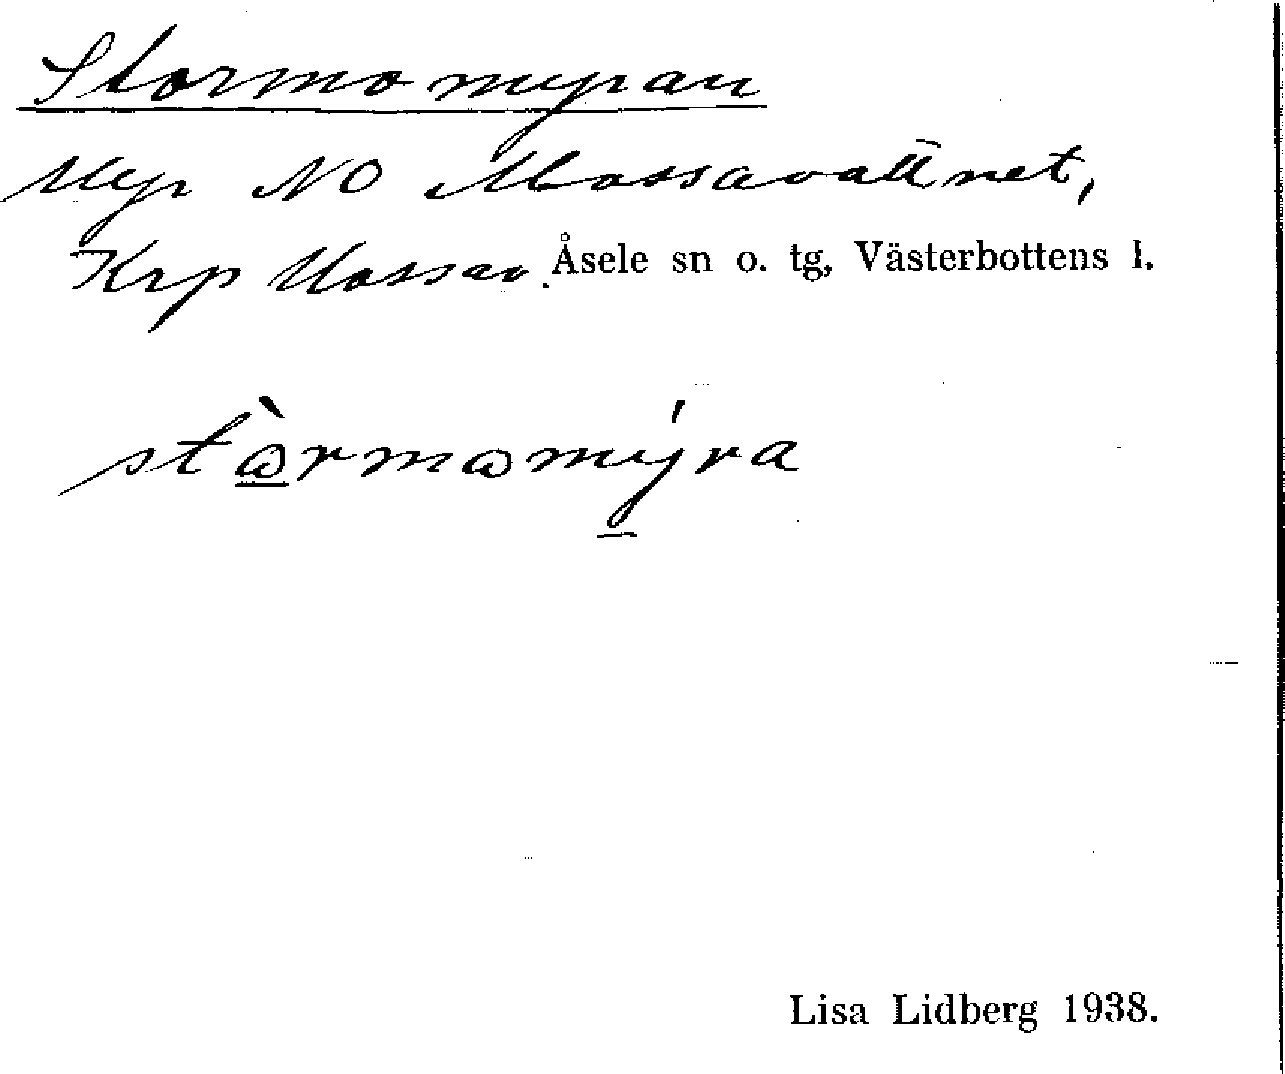 Stormomyran
Myr NO Mossavattnet,
Krp Mossav. Åsele sn o. tg, Västerbottens l.
stɷ̀rmɷmy̍ra
Lisa Lidberg 1938.